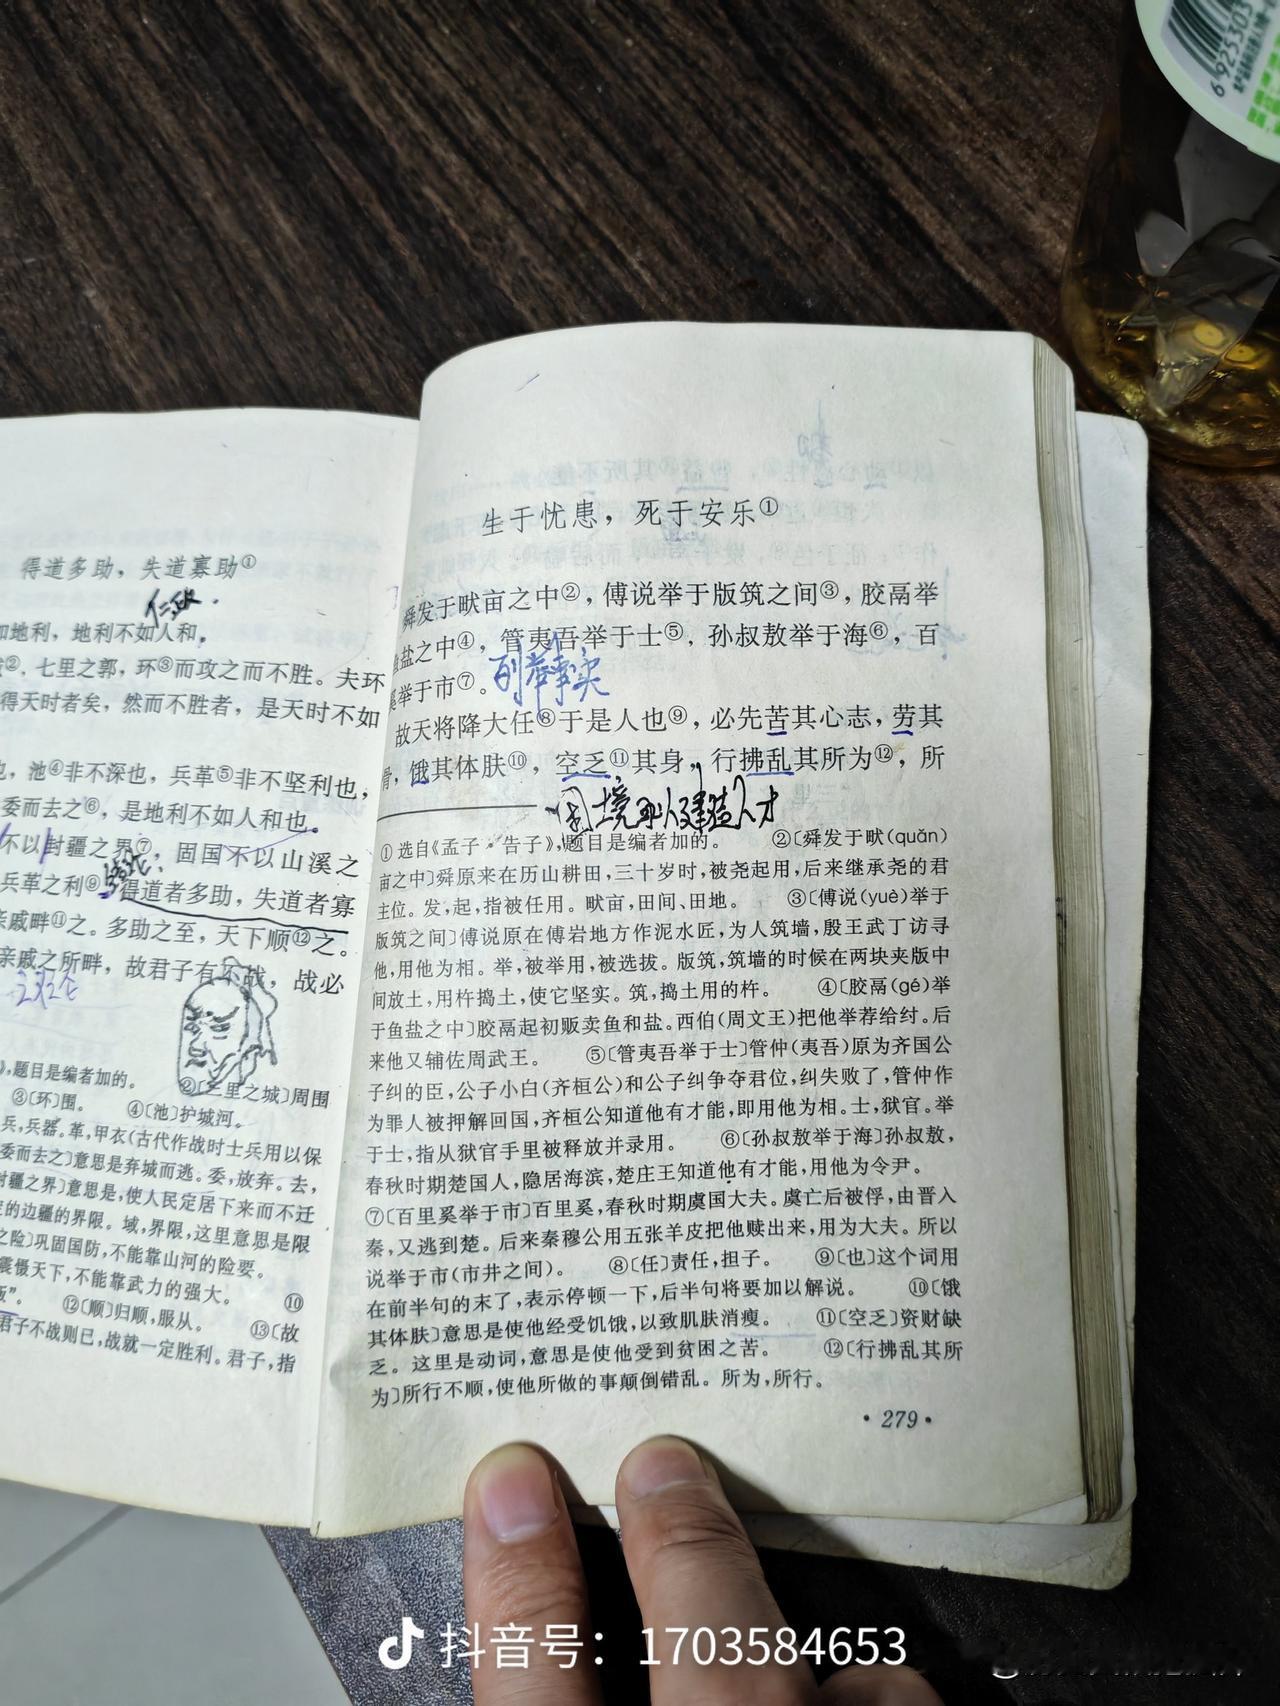 得道多助，失道寡助①
仁政.
如地利，地利不如人和。
②．七里之郭，环③而攻之而不胜。夫环
得天时者矣，然而不胜者，是天时不如
也，池④非不深也，兵革⑤非不坚利也，
委而去之⑥，是地利不如人和也。
不以封疆之界⑦，固国不以山溪之
兵革之利⑨。得道者多助，失道者寡
结论
亲戚畔⑪之。多助之至，天下顺⑫之。
亲戚之所畔，故君子有不战，战必
，题目是编者加的。 ②〔三里之城〕周围
③〔环〕围。 ④〔池〕护城河。
兵，兵器。革，甲衣（古代作战时士兵用以保
委而去之〕意思是弃城而逃。委，放弃。去，
封疆之界〕意思是，使人民定居下来而不迁
的边疆的界限。域，界限，这里意思是限
之险〕巩固国防，不能靠山河的险要。
震慑天下，不能靠武力的强大。 ⑩
”。 ⑫〔顺〕归顺，服从。 ⑬〔故
君子不战则已，战就一定胜利。君子，指
生于忧患，死于安乐①
舜发于畎亩之中②，傅说举于版筑之间③，胶鬲举
鱼盐之中④，管夷吾举于士⑤，孙叔敖举于海⑥，百
奚举于市⑦。
列举事实
故天将降大任⑧于是人也⑨，必先苦其心志，劳其
骨，饿其体肤⑩，空乏⑪其身，行拂乱其所为⑫，所
困境可以造人才
①选自《孟子·告子》，题目是编者加的。 ②〔舜发于畎(quǎn)
亩之中〕舜原来在历山耕田，三十岁时，被尧起用，后来继承尧的君
主位。发，起，指被任用。畎亩，田间、田地。 ③〔傅说(yuè)举于
版筑之间〕傅说原在傅岩地方作泥水匠，为人筑墙，殷王武丁访寻
他，用他为相。举，被举用，被选拔。版筑，筑墙的时候在两块夹版中
间放土，用杵捣土，使它坚实。筑，捣土用的杵。 ④〔胶鬲(gé)举
于鱼盐之中〕胶鬲起初贩卖鱼和盐。西伯(周文王)把他举荐给纣。后
来他又辅佐周武王。 ⑤〔管夷吾举于士〕管仲(夷吾)原为齐国公
子纠的臣，公子小白(齐桓公)和公子纠争夺君位，纠失败了，管仲作
为罪人被押解回国，齐桓公知道他有才能，即用他为相。士，狱官。举
于士，指从狱官手里被释放并录用。 ⑥〔孙叔敖举于海〕孙叔敖，
春秋时期楚国人，隐居海滨，楚庄王知道他有才能，用他为令尹。
⑦〔百里奚举于市〕百里奚，春秋时期虞国大夫。虞亡后被俘，由晋入
秦，又逃到楚。后来秦穆公用五张羊皮把他赎出来，用为大夫。所以
说举于市(市井之间)。 ⑧〔任〕责任，担子。 ⑨〔也〕这个词用
在前半句的末了，表示停顿一下，后半句将要加以解说。 ⑩〔饿
其体肤〕意思是使他经受饥饿，以致肌肤消瘦。 ⑪〔空乏〕资财缺
乏。这里是动词，意思是使他受到贫困之苦。 ⑫〔行拂乱其所
为〕所行不顺，使他所做的事颠倒错乱。所为，所行。
·279·
6925303
抖音号：1703584653